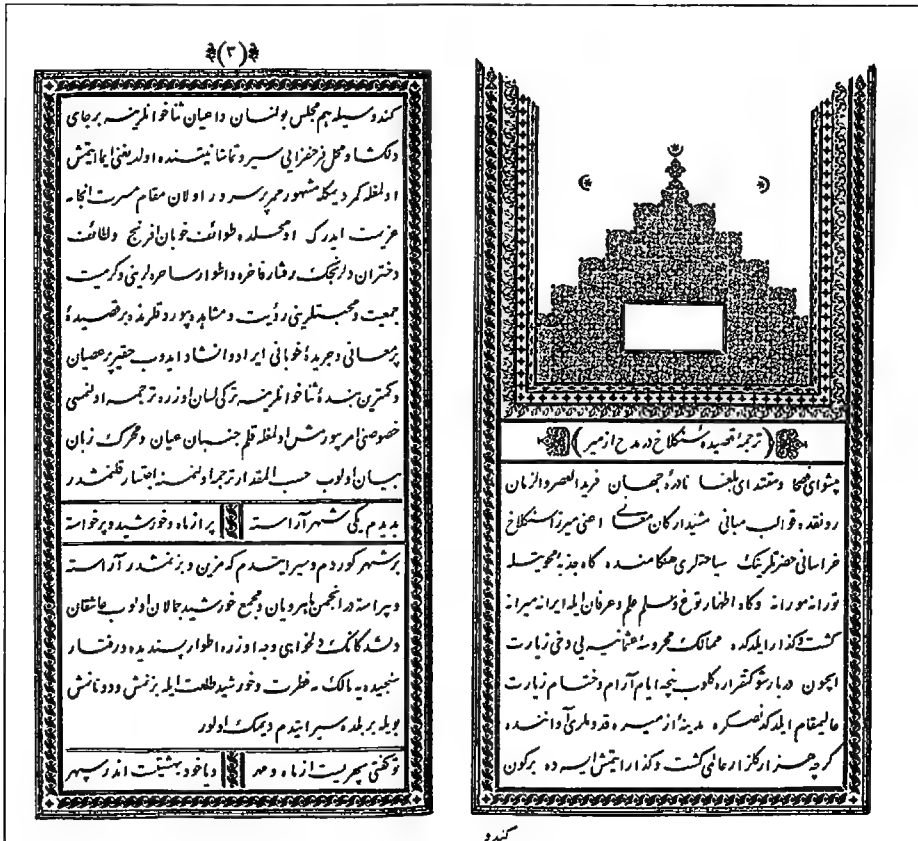 (ترجمهٔ قصیدهٔ سنكلاخ در مدح ازمیر)
پیشوای فصحا ومقتدای بلغا نادرهٔ جهان فرید العصر والزمان
رونقده قوالب مبانی مشید اركان معانی اعنی میرزا سنكلاخ
خراسانی حضرتلرینك سیاحتلری هنكامنده كاه جذبهٔ محویتله
تورانه مورانه وكاه اظهار علم وعرفان ایله ایرانه میرانه
كشت وكذار ایلدكده ممالك محروسهٔ عثمانیه یی دخی زیارت
ایچون دربار شوكتقراره كلوب نیجه ایام آرام وختام زیارت
عالیمقام ایلدكدنصكره مدینهٔ ازمیره قدوملری آواننده
كرچه هزار كلزار عالمی كشت وكذار ایتمش ایسه ده بركون
كندو
(٣)
كندوسیله هم مجلس بولنان داعیان ثناخوانلرینه برجای
دلكشا ومحل فرحفزایی سیر وتماشا نیتنده اولدیغنی ایما ایتمش
اولمغله كمر دیمكله مشهور ممر پرسرور اولان مقام مسرت انجامه
عزیمت ایدرك اومحلده طوائف خوبان افرنج ولطائف
دختران دلرنجك رفتار فاخره واطوار ساحره لرینی وكرمیت
جمعیت ومحبتلرینی رؤیت ومشاهده بیوردقلرنده برقصیدهٔ
پرمعانی وجریدهٔ خوبانی ایراد وانشاد ایدوب حقیر پرعصیان
وكمترین بندهٔ ثناخوانلرینه تركی لسان اوزره ترجمه اولنمسی
خصوصنی امر بیورمش اولمغله قلم جنبان عیان ومحرك زبان
بیان اولوب حسب المقدار ترجمه اولنمسنه ابتدار قلنمشدر
بدیدم یكی شهر آراسته پر از ماه وخورشید وپرخواسته
برشهر كوردم وسیر ایتدم كه مزین وبزنمشدر آراسته
وپیراسته در انجمن ماهرویان ومجمع خورشید جمالان اولوب عاشقان
دلشدكانك دلخواهی وجه اوزره اطوار پسندیده ورفتار
سنجیده یه مالك مه فطرت وخورشید طلعت ایله بزنمش ودونانمش
بویله بر بلده سیر ایتدم دیمك اولور
توكفتی سپهریست از ماه ومهر ویا خود بهشتیست اندر سپهر